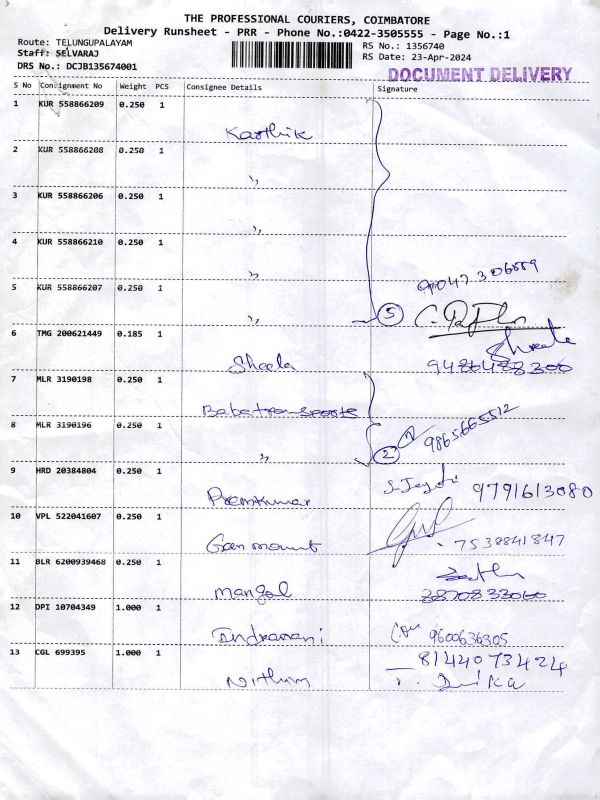 THE PROFESSIONAL COURIERS, COIMBATORE
Delivery Runsheet - PRR - Phone No.:0422-3505555 - Page No.:1
Route: TELUNGUPALAYAM
Staff: SELVARAJ
DRS No.: DCJB135674001
RS No.: 1356740
RS Date: 23-Apr-2024
DOCUMENT DELIVERY
S No Consignment No Weight PCS Consignee Details Signature
1 KUR 558866209 0.250 1
Karthik
2 KUR 558866208 0.250 1
"
3 KUR 558866206 0.250 1
"
4 KUR 558866210 0.250 1
"
5 KUR 558866207 0.250 1
" 5
6 TMG 200621449 0.185 1
Sheela
Sheela 9486488300
7 MLR 3190198 0.250 1
Babatransports
8 MLR 3190196 0.250 1
" 2 9865665512
9 HRD 20384804 0.250 1
Premkumar 9791613080
10 VPL 522041607 0.250 1
7538841847
11 BLR 6200939468 0.250 1
Mangal
12 DPI 10704349 1.000 1
Indramani 9600636305
13 CGL 699395 1.000 1
8144073424